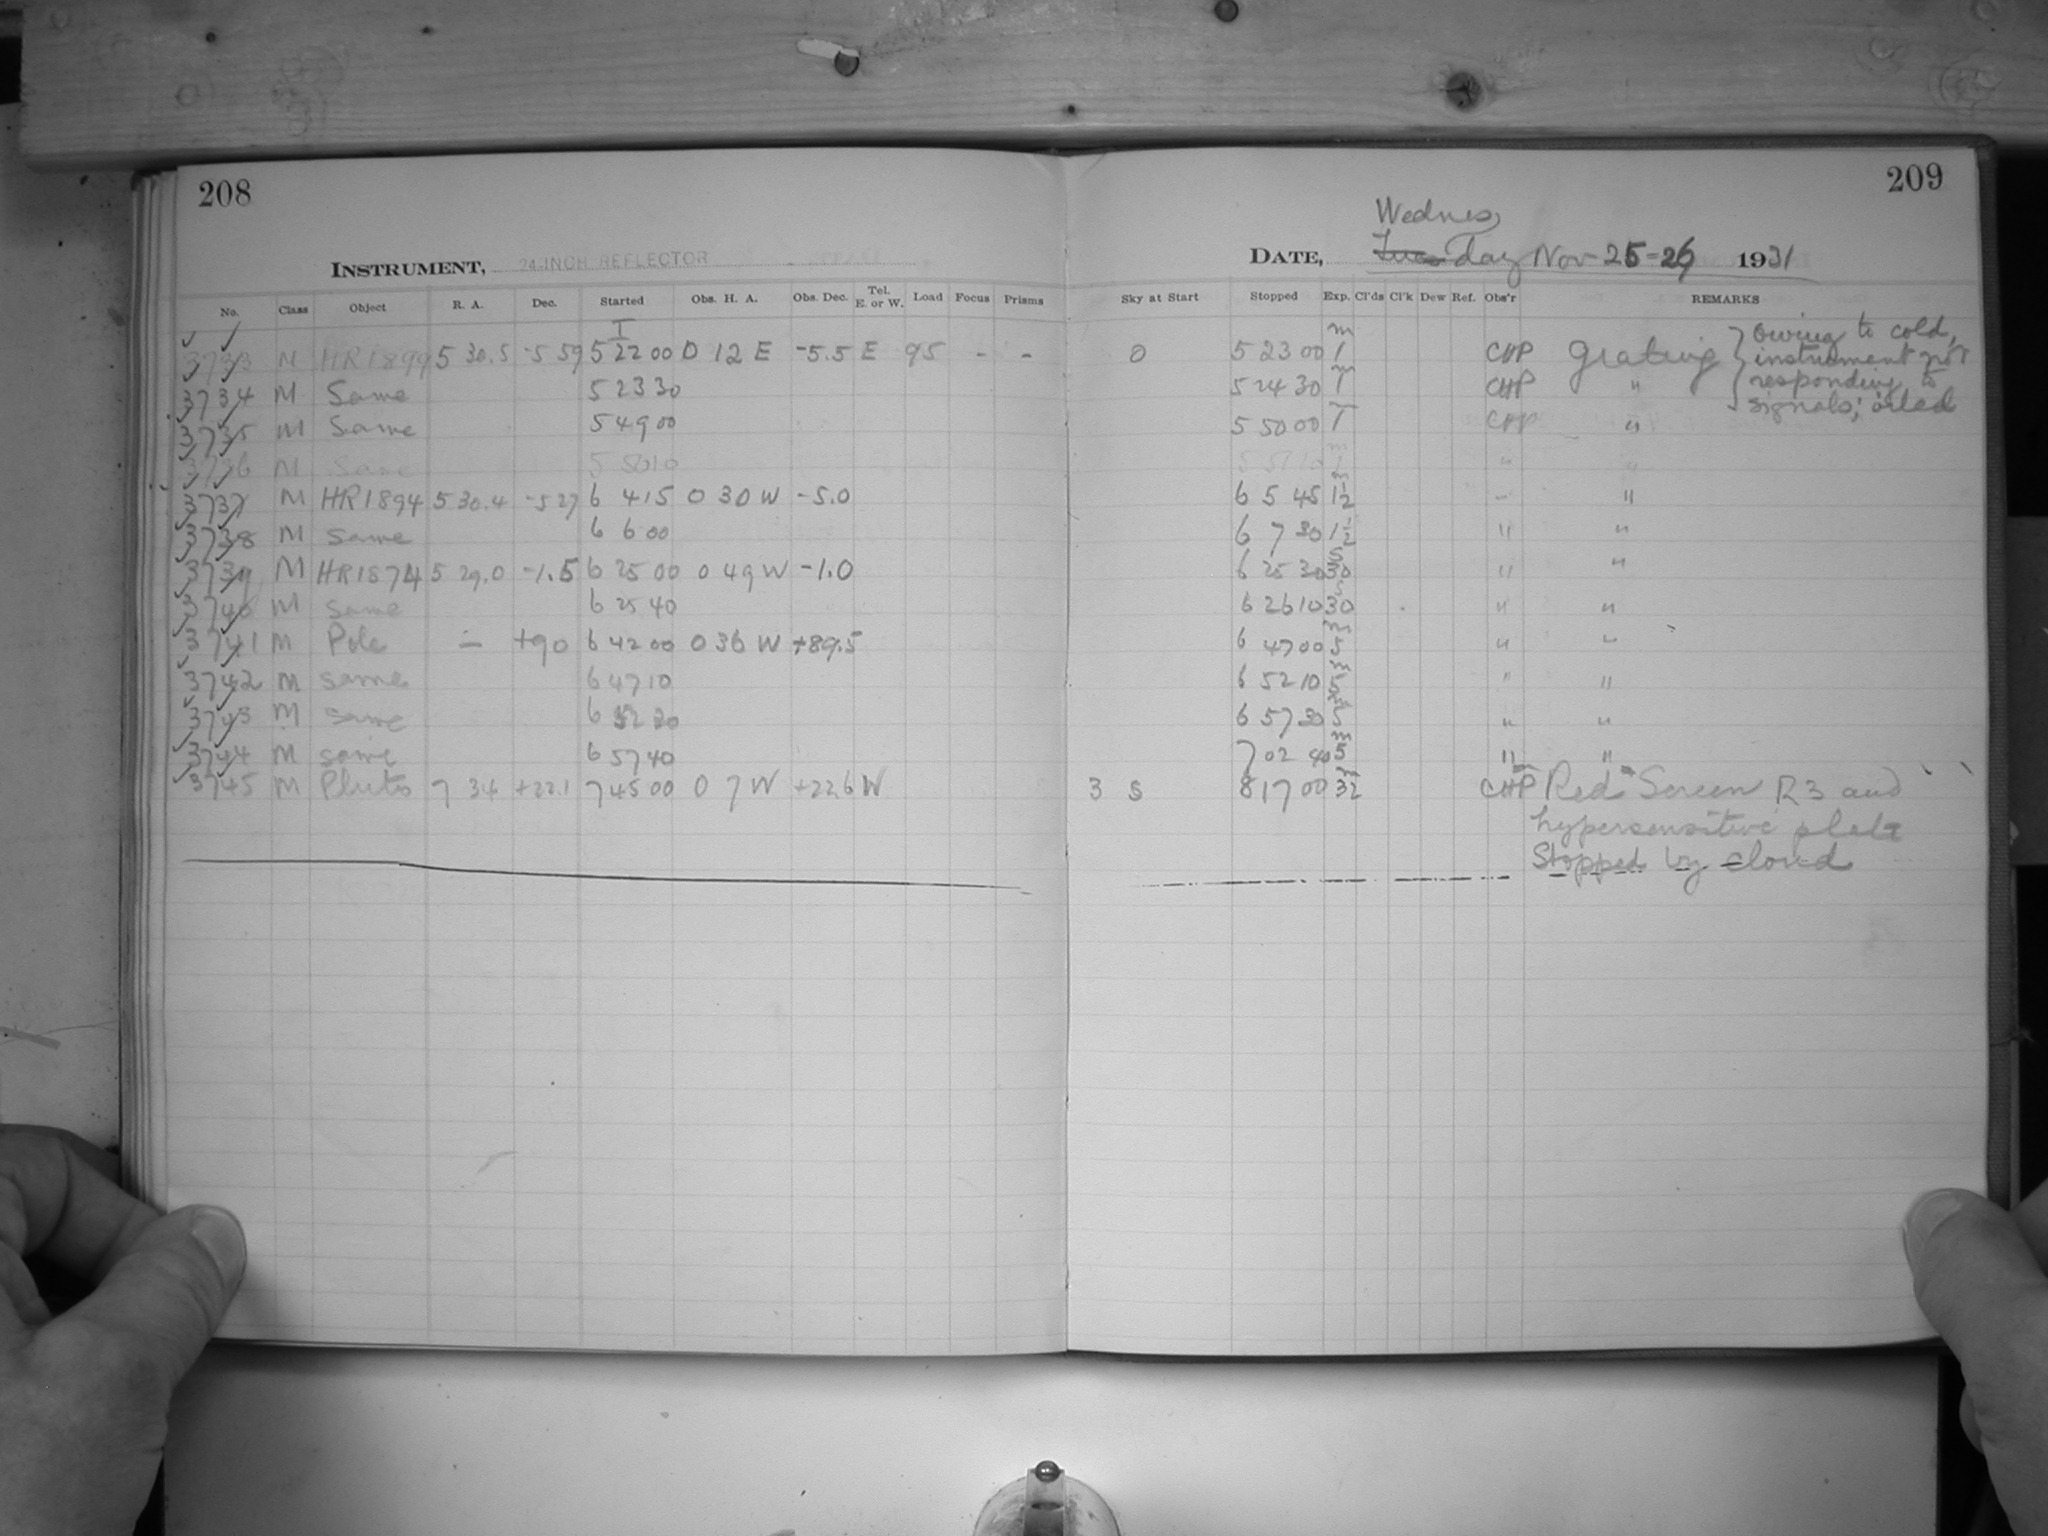 208
209
Wednes
INSTRUMENT, 24-INCH REFLECTOR
DATE, day Nov 25-26 1931
No. Class Object R. A. Dec. Started Obs. H. A. Obs. Dec. Tel. E. or W. Load Focus Prisms Sky at Start Stopped Exp. Cl'ds Cl'k Dew Ref. Obs'r REMARKS
3733 M HR1899 5 30.5 -5 59 5 22 00 0 12 E -5.5 E 95 - - 0 5 23 00 1 m CHP Grating } Owing to cold, instrument not responding to signals; oiled
3734 M Same 5 23 30 5 24 30 1 CHP "
3735 M Same 5 49 00 5 50 00 1 CHP "
3736 M Same 5 50 10 5 51 10 1 m " "
3737 M HR1894 5 30.4 -5 27 6 4 15 0 30 W -5.0 6 5 45 1½ " "
3738 M Same 6 6 00 6 7 30 1½ " "
3739 M HR1874 5 29.0 -1.5 6 25 00 0 49 W -1.0 6 25 30 30 s " "
3740 M Same 6 25 40 6 26 10 30 s " "
3741 M Pole - +90 6 42 00 0 36 W +89.5 6 47 00 5 m " "
3742 M same 6 47 10 6 52 10 5 m " "
3743 M same 6 52 20 6 57 20 5 m " "
3744 M same 6 57 40 7 02 40 5 m " "
3745 M Pluto 7 34 +22.1 7 45 00 0 7 W +22.6 W 3 S 8 17 00 32 m CHP Red Screen R3 and
hypersensitive plate
Stopped by cloud